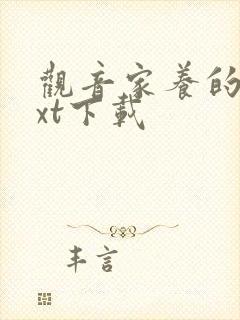 觀音家養的
xt下載
丰言